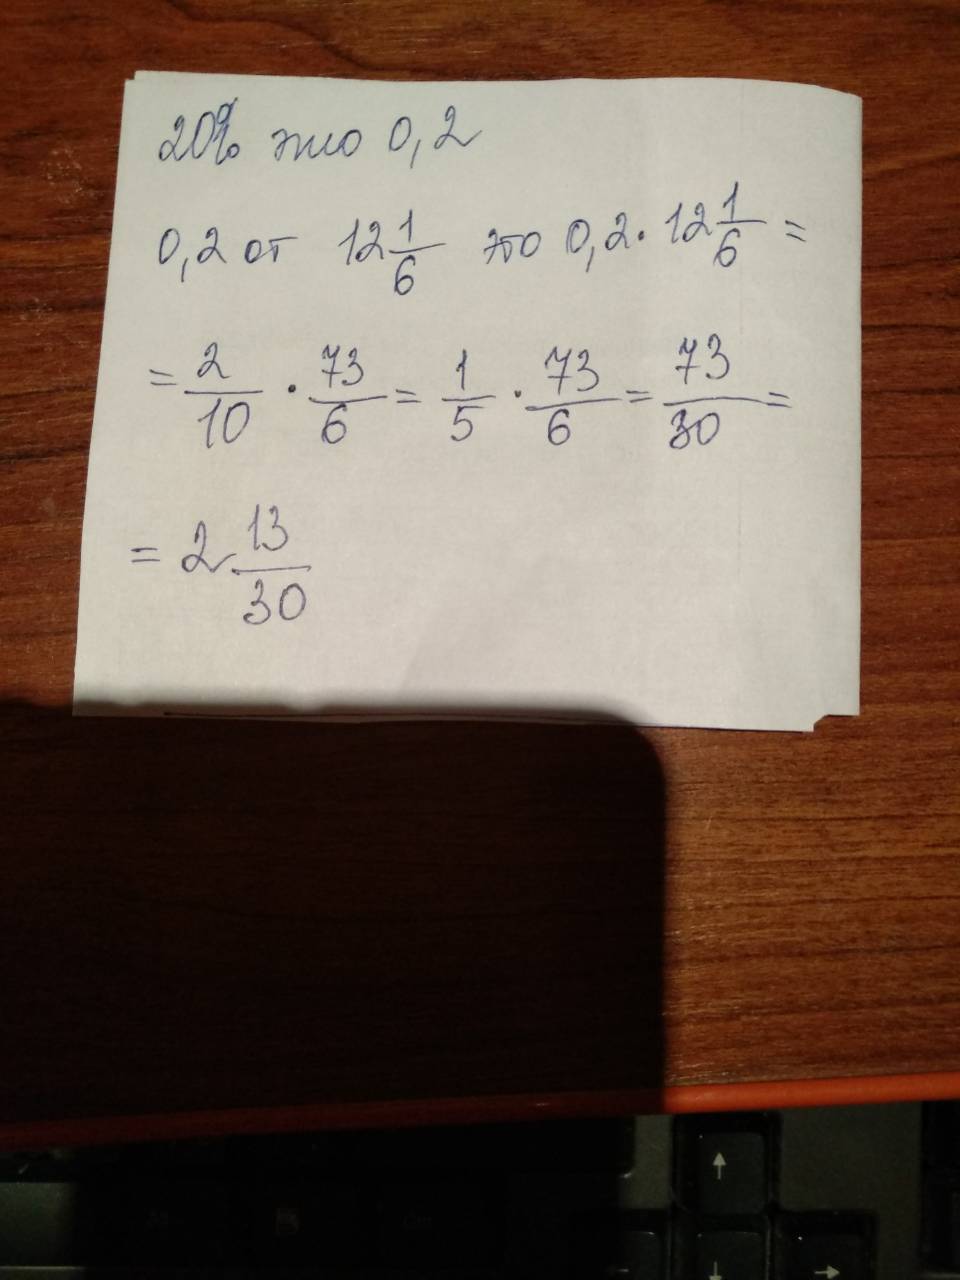 20% это 0,2
0,2 от 12 1/6 это 0,2 · 12 1/6 =
= 2/10 · 73/6 = 1/5 · 73/6 = 73/30 =
= 2 13/30